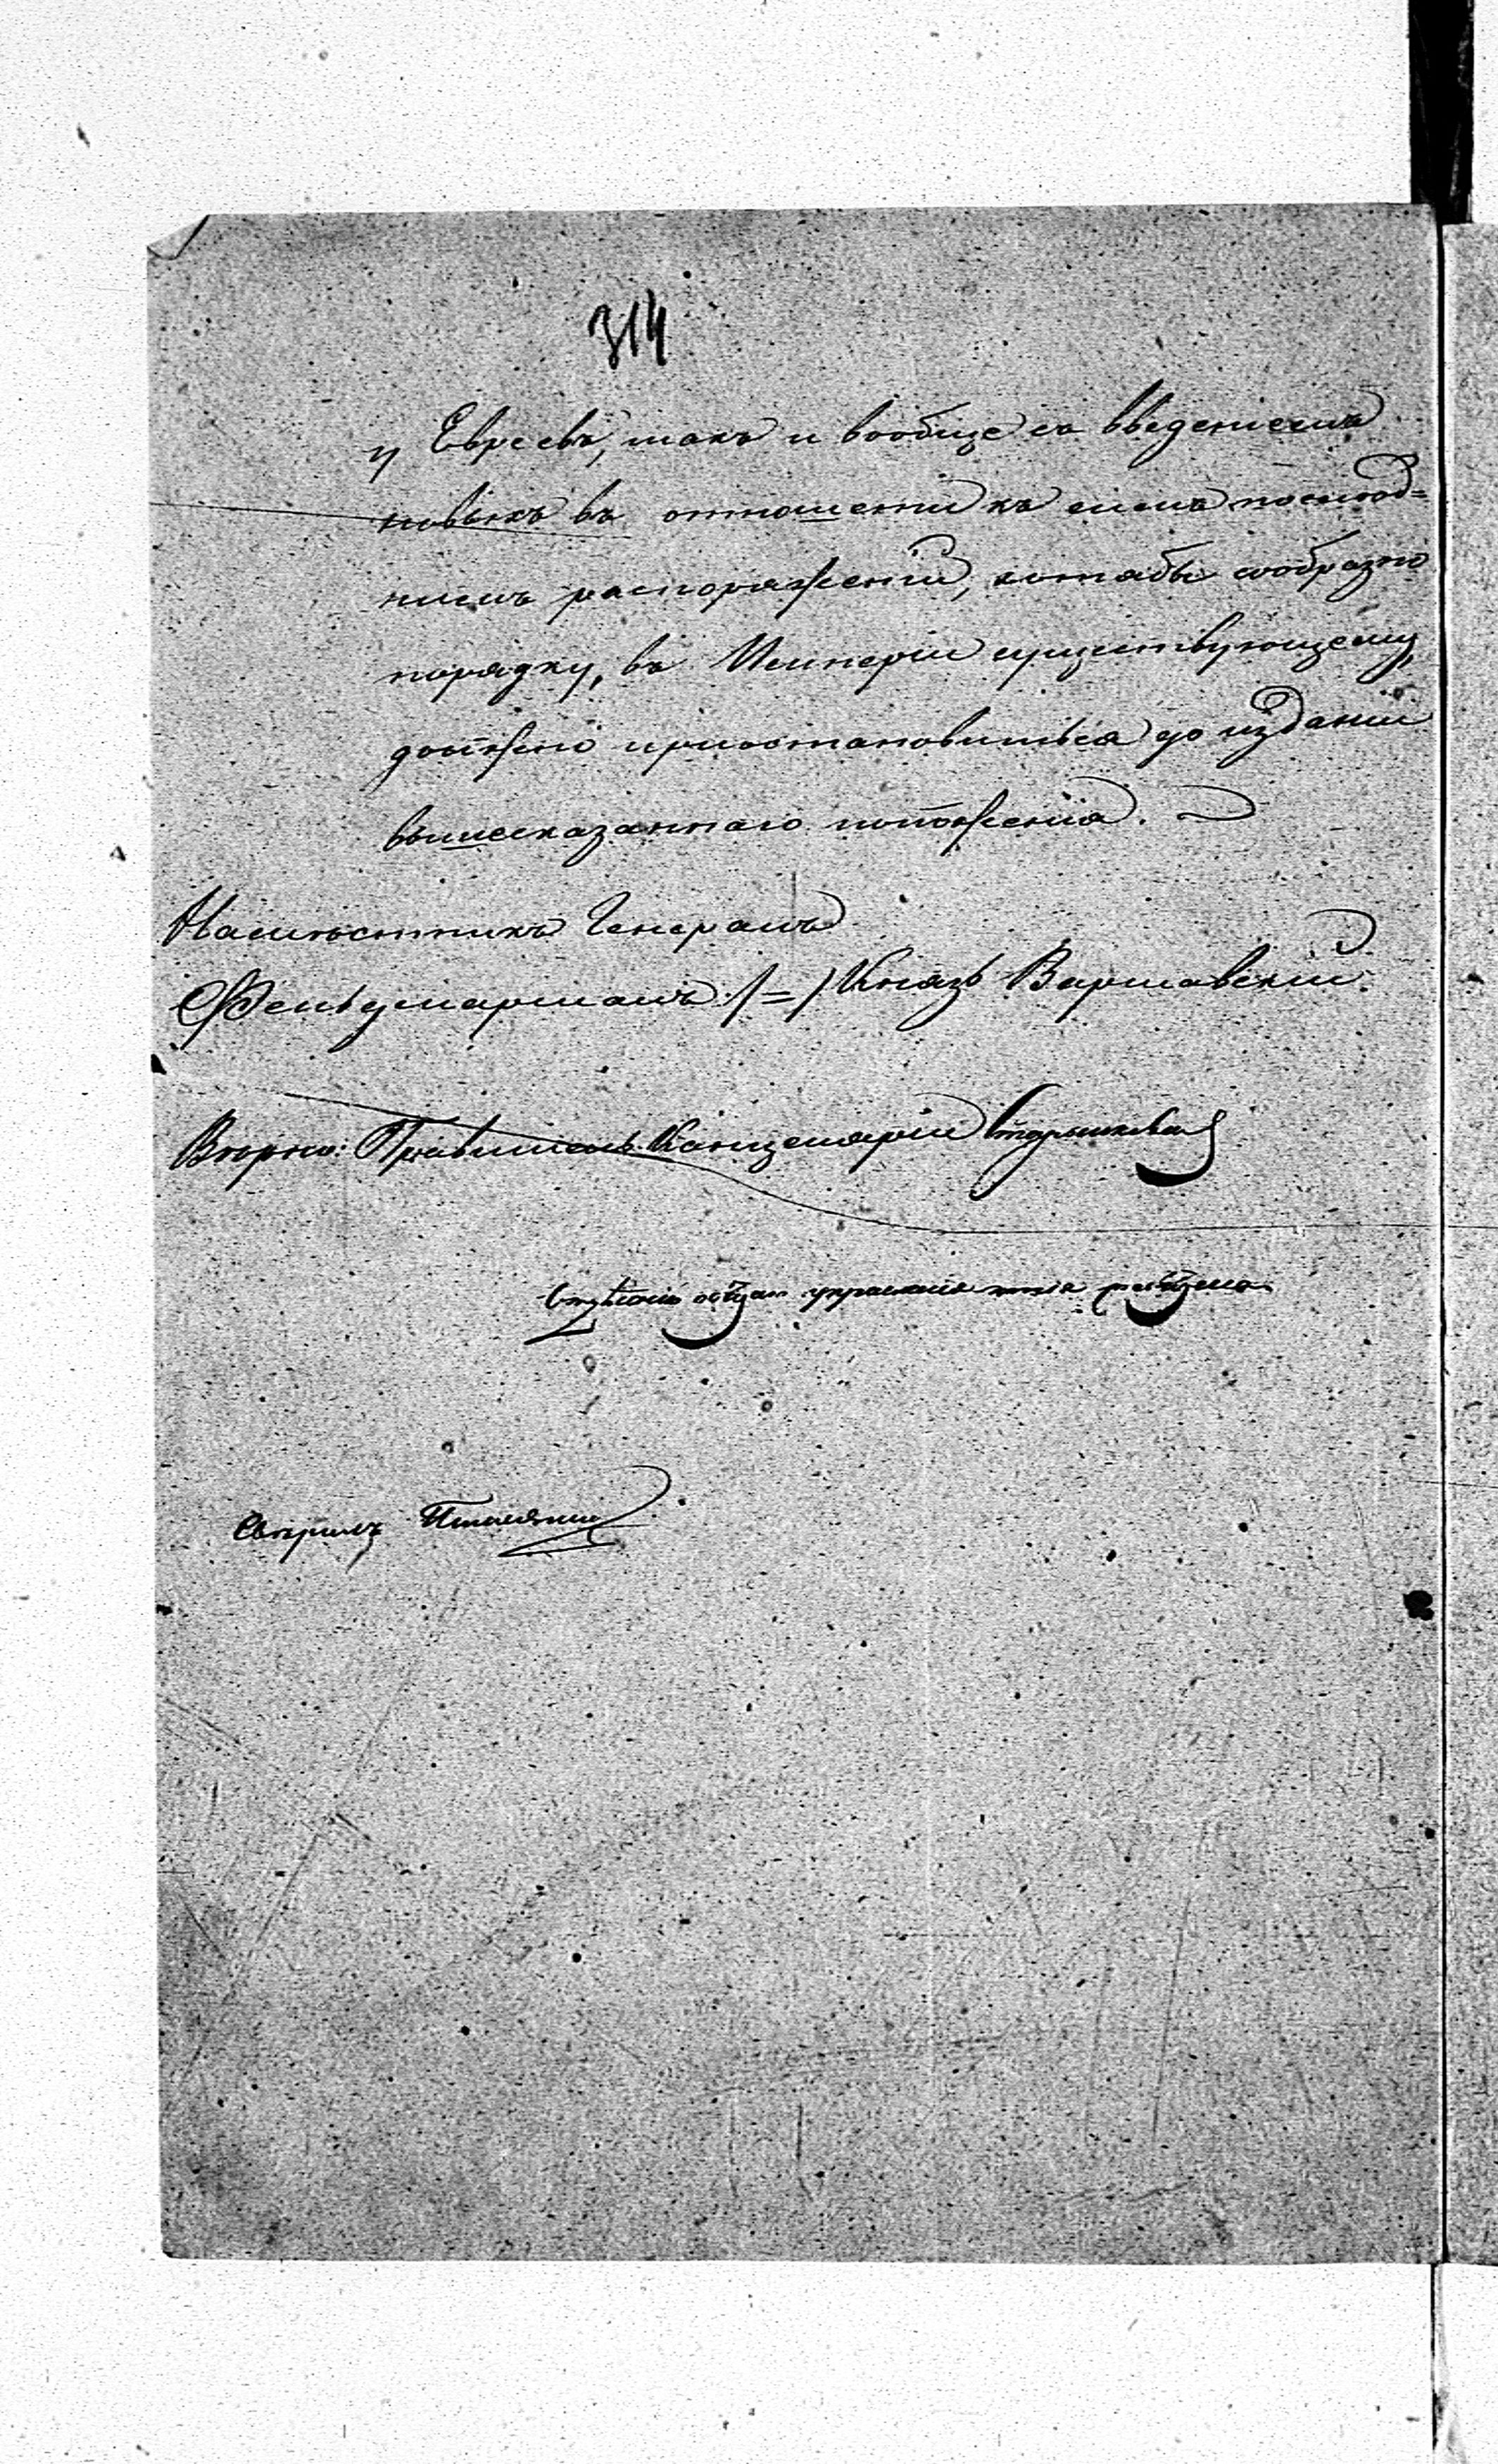 314
у Евреевъ, такъ и вообще съ введеніемъ
новыхъ въ отношеніи къ симъ послѣд=
нимъ распоряженій, хотябы сообразно
порядку, въ Имперіи существующему,
должно пріостановиться до изданія
вышесказаннаго положенія.
Намѣстникъ Генералъ
Фельдмаршалъ /=/ Князь Варшавскій.
Вѣрно: Правитель Канцеляріи
управленія
Свѣрилъ